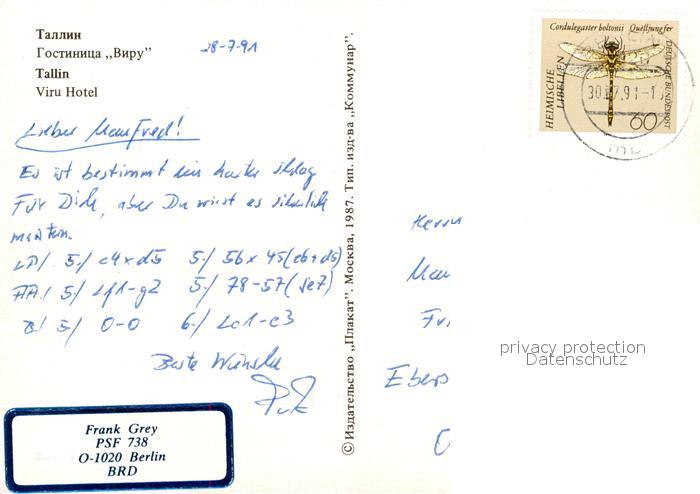 Таллин
Гостиница „Виру”
Tallin
Viru Hotel
28-7-91
Lieber Manfred!
Es ist bestimmt ein harter Schlag
Für Dich, aber Du wirst es sicherlich
meistern.
5./ c4xd5 5./ 56x45(cb+d5)
5./ Lf1-g2 5./ 78-57(Se7)
5/ 0-0 6./ Lc1-e3
Beste Wünsche
Frank Grey
PSF 738
O-1020 Berlin
BRD
© Издательство „Плакат”. Москва, 1987. Тип. изд-ва „Коммунар”.
Cordulegaster boltonii Quelljungfer
HEIMISCHE
LIBELLEN
DEUTSCHE BUNDESPOST
60
30.07.91-1
Herrn
Man
Fri
Ebers
privacy protection
Datenschutz